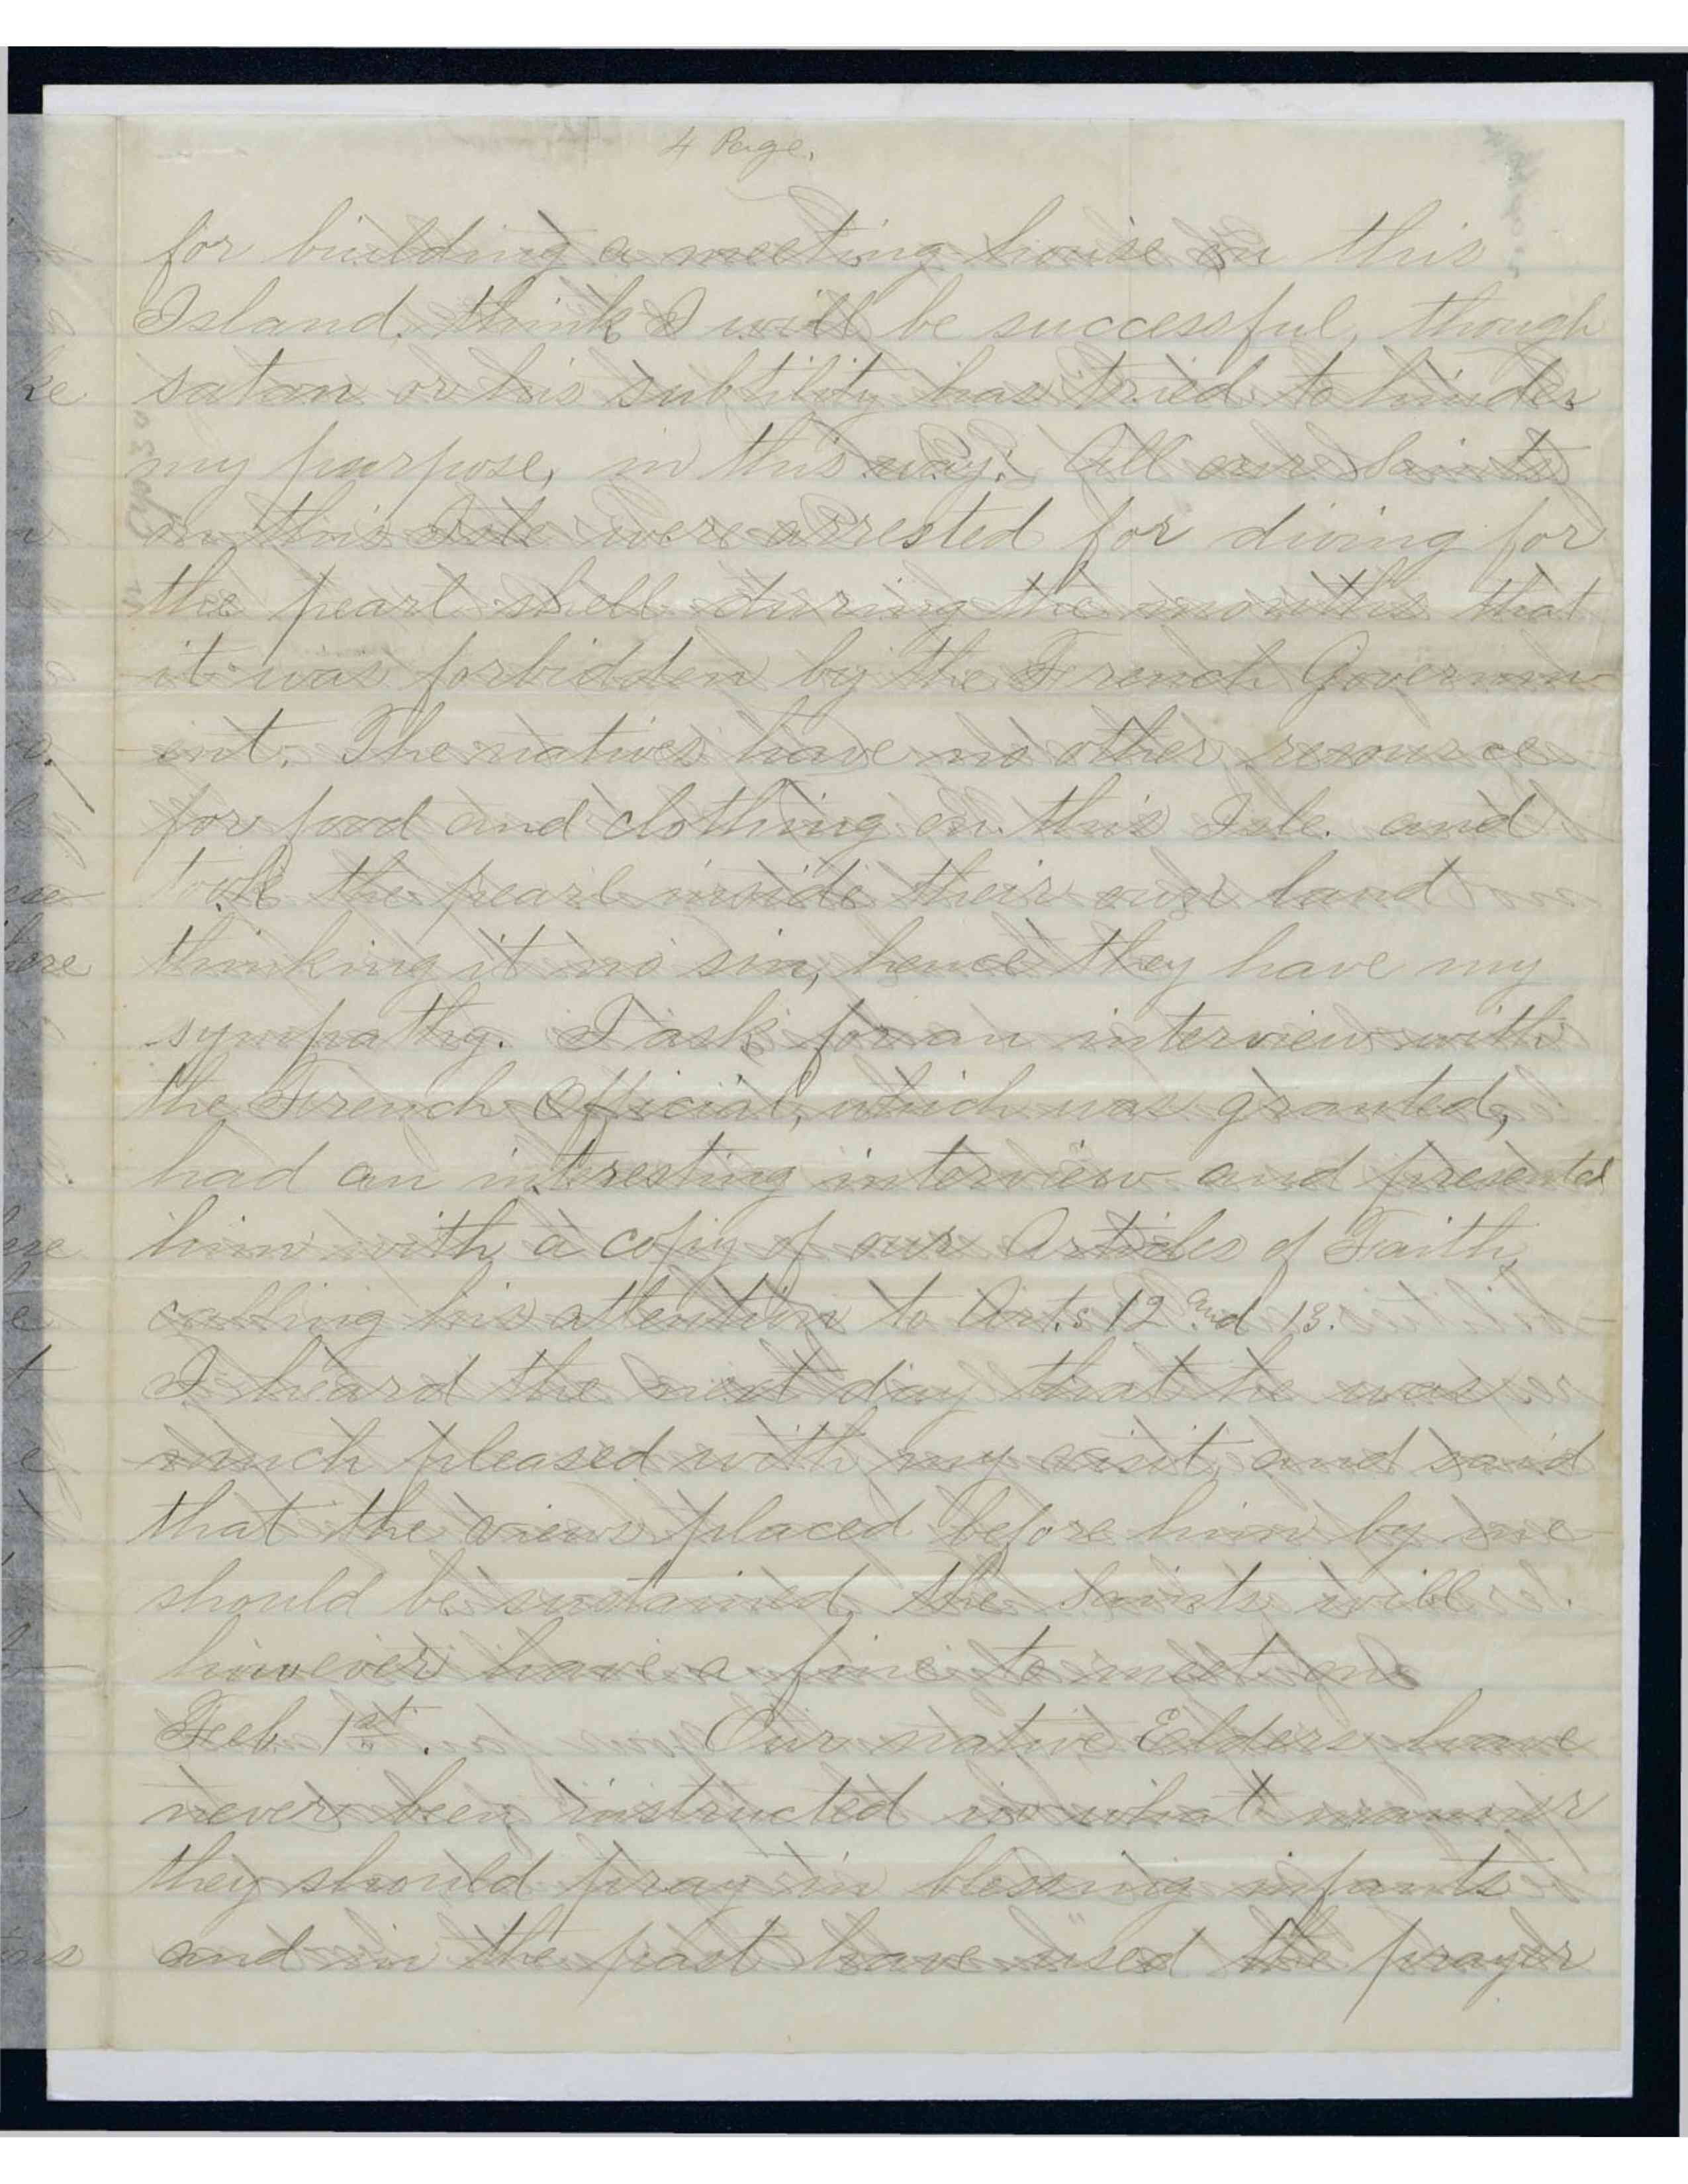 4 Page.
for building a meeting house on this
Island. think I will be successful, though
satan or his subtility has tried to hinder
my purpose, in this way: All our Saints
on this Isle were arrested for diving for
the pearl shell during the months that
it was forbidden by the French Governm
ent. The natives have no other resource
for food and clothing on this Isle. and
took the pearl inside their own land
thinking it no sin, hence they have my
sympathy. I ask for an interview with
the French Official, which was granted,
had an intresting interview and presented
him with a copy of our Articles of Faith,
calling his attention to Arts 12 and 13.
I heard the next day that he was
much pleased with my visit, and said
that the views placed before him by me
should be sustained, the Saints will
however have a fine to meet on
Feb. 1st. Our native Elders have
never been instructed in what manner
they should pray in blessing infants
and in the past have used the prayer